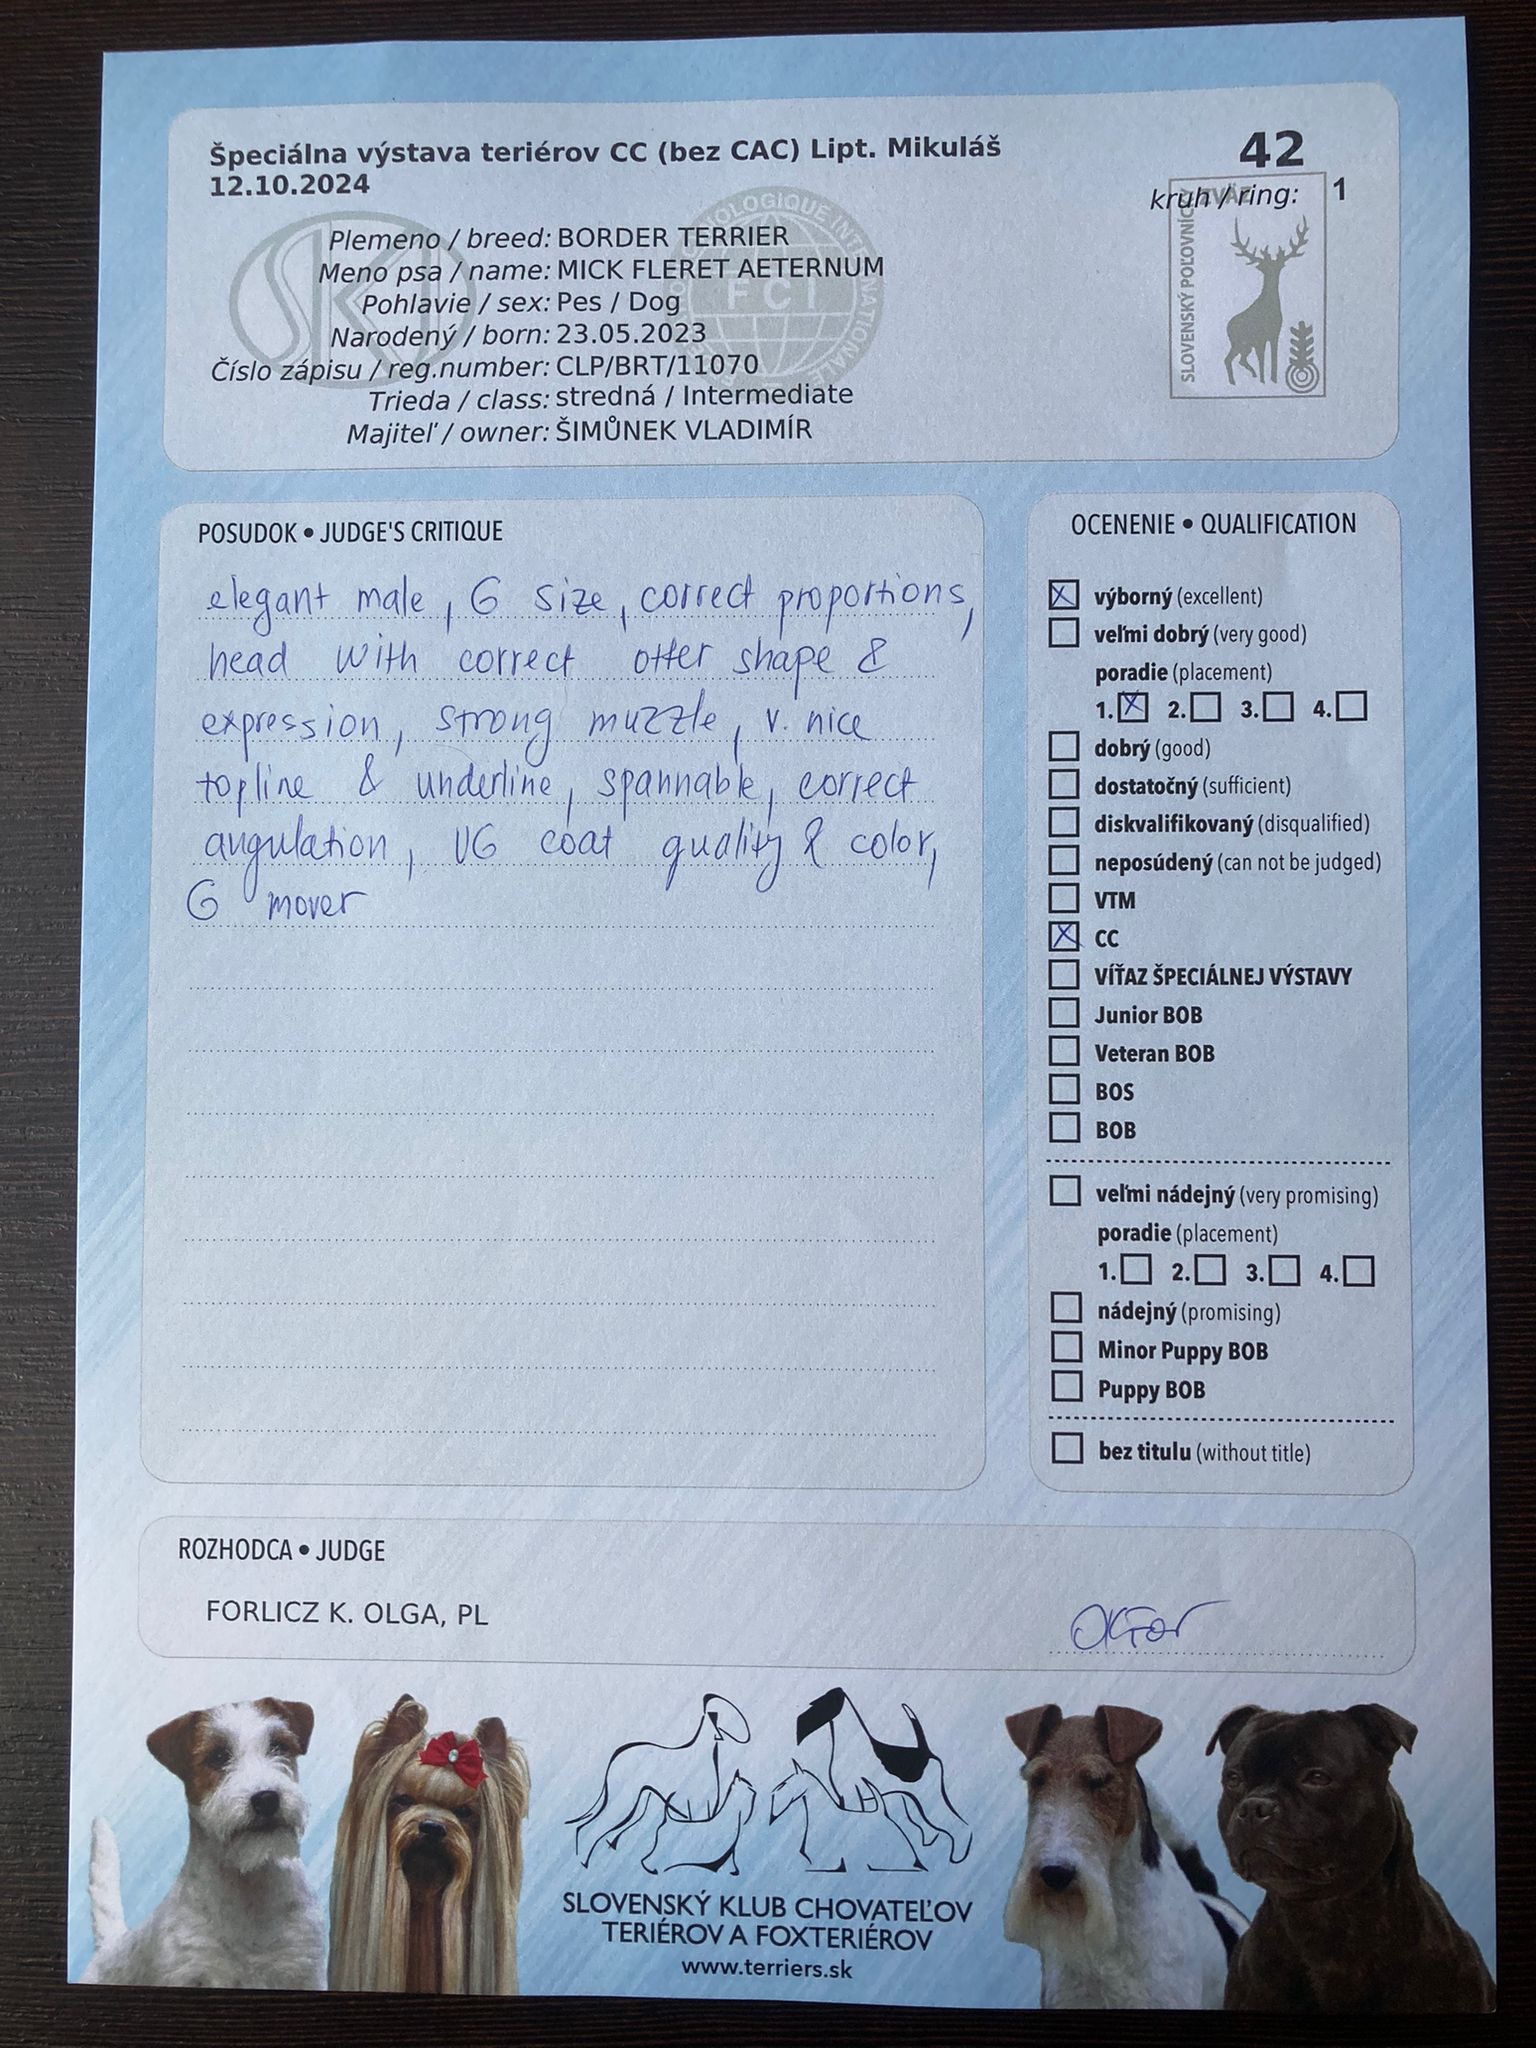 Špeciálna výstava teriérov CC (bez CAC) Lipt. Mikuláš
12.10.2024
42
kruh / ring: 1
Plemeno / breed: BORDER TERRIER
Meno psa / name: MICK FLERET AETERNUM
Pohlavie / sex: Pes / Dog
Narodený / born: 23.05.2023
Číslo zápisu / reg.number: CLP/BRT/11070
Trieda / class: stredná / Intermediate
Majiteľ / owner: ŠIMŮNEK VLADIMÍR
SKJ
FCI
SLOVENSKÝ POĽOVNÍCKY ZVÄZ
POSUDOK • JUDGE'S CRITIQUE
elegant male, G size, correct proportions,
head with correct otter shape &
expression, strong muzzle, v. nice
topline & underline, spannable, correct
angulation, VG coat quality & color,
G mover
OCENENIE • QUALIFICATION
výborný (excellent)
veľmi dobrý (very good)
poradie (placement)
1. 2. 3. 4.
dobrý (good)
dostatočný (sufficient)
diskvalifikovaný (disqualified)
neposúdený (can not be judged)
VTM
CC
VÍŤAZ ŠPECIÁLNEJ VÝSTAVY
Junior BOB
Veteran BOB
BOS
BOB
veľmi nádejný (very promising)
poradie (placement)
1. 2. 3. 4.
nádejný (promising)
Minor Puppy BOB
Puppy BOB
bez titulu (without title)
ROZHODCA • JUDGE
FORLICZ K. OLGA, PL
SLOVENSKÝ KLUB CHOVATEĽOV
TERIÉROV A FOXTERIÉROV
www.terriers.sk